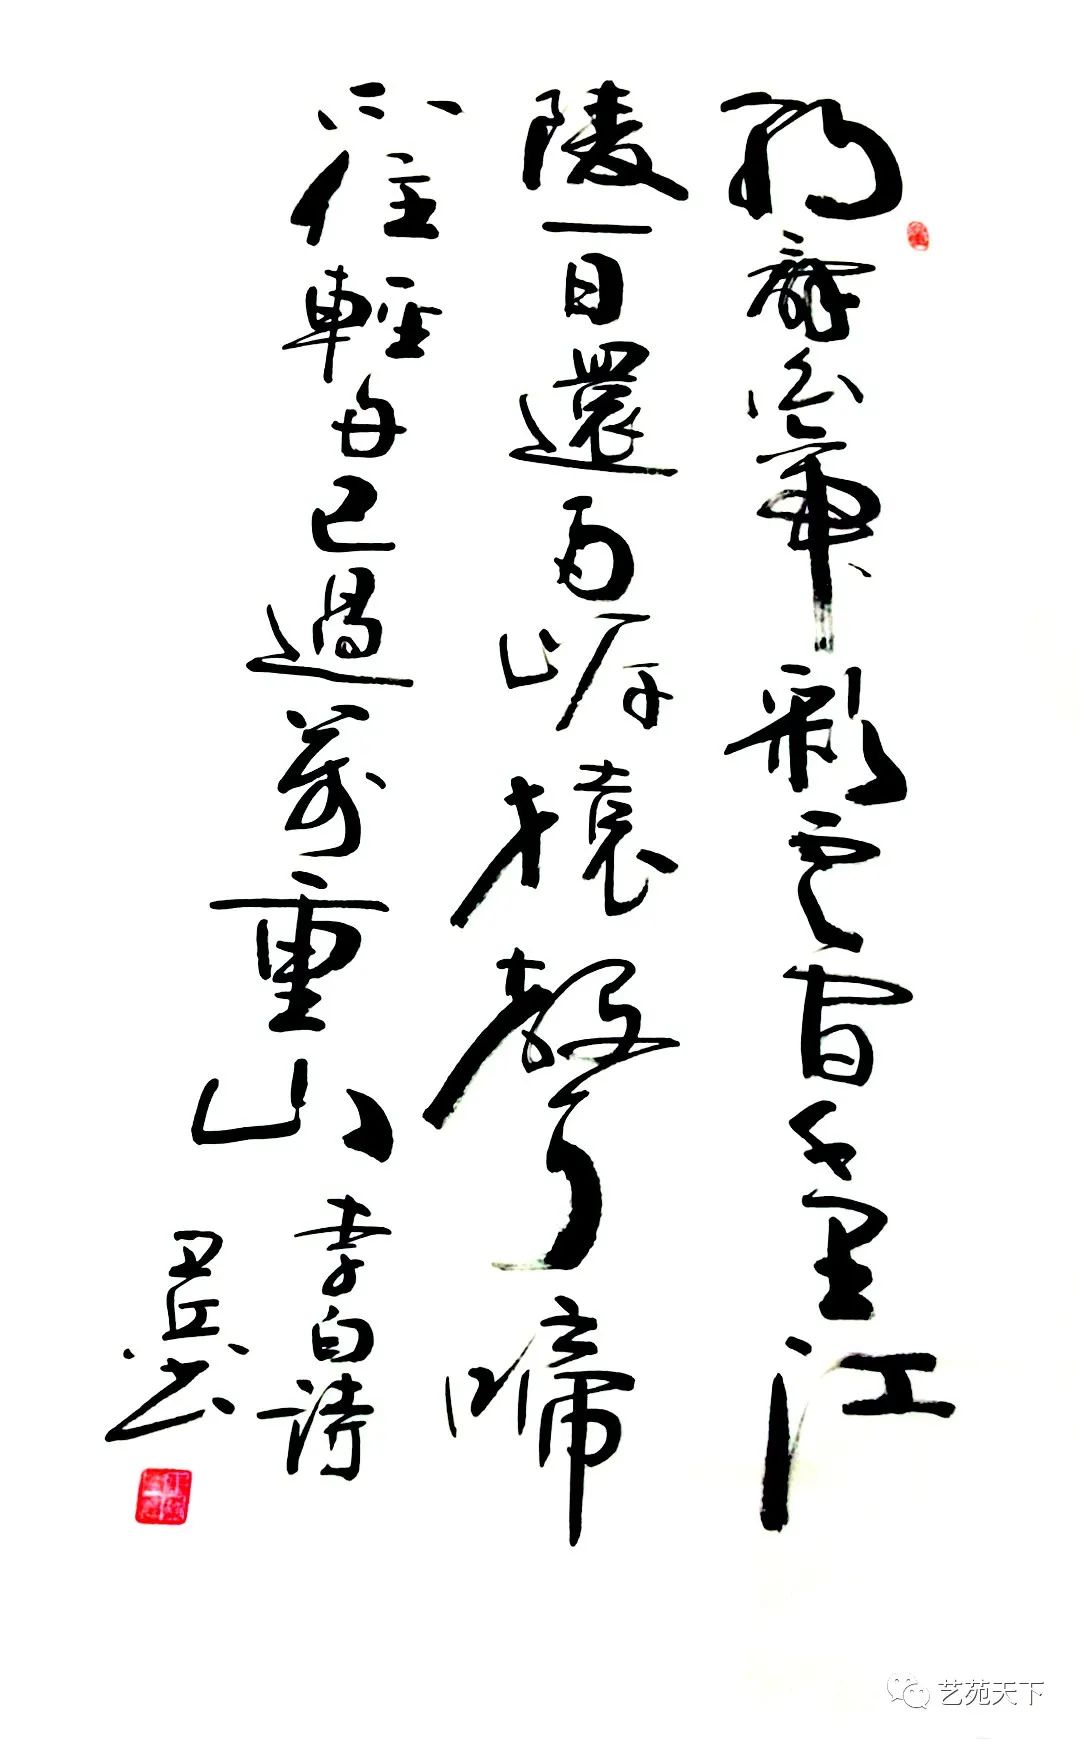 朝辭白帝彩雲間千里江
陵一日還兩岸猿聲啼
不住輕舟已過萬重山
李白詩
艺苑天下